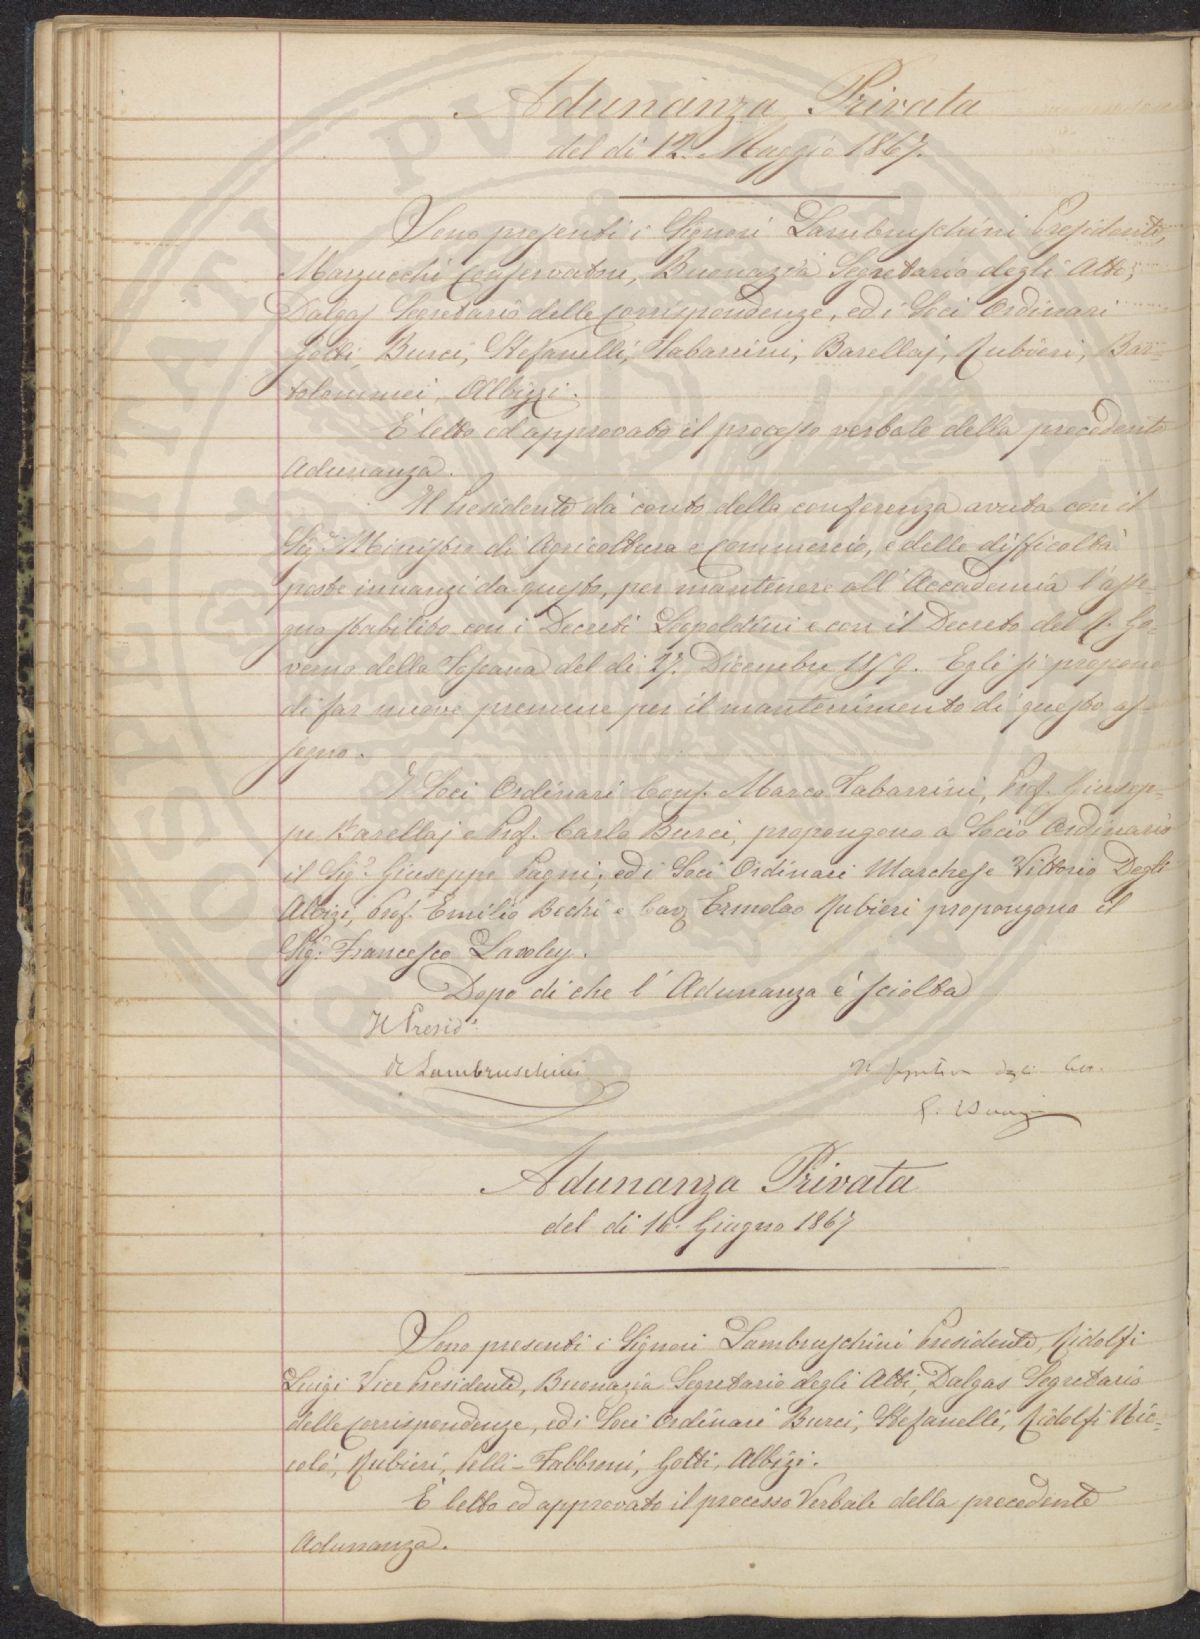 Adunanza Privata
del dì 12. Maggio 1867.
Sono presenti i Signori Lambruschini Presidente,
Marzucchi Conservatore, Buonazia Segretario degli Atti,
Dalgas Segretario delle Corrispondenze, ed i Soci Ordinari
Gotti, Burci, Stefanelli, Tabarrini, Barellaj, Rubieri, Bar-
tolommei, Albizzi.
È letto ed approvato il processo verbale della precedente
Adunanza.
Il Presidente dà conto della conferenza avuta con il
Sig.r Ministro di Agricoltura e Commercio, e delle difficoltà
poste innanzi da questo, per mantenere all'Accademia l'asse-
gno stabilito con i Decreti Leopoldini e con il Decreto del R. Go-
verno della Toscana del dì 17. Dicembre 1859. Egli si propone
di far nuove premure per il mantenimento di questo as-
segno.
I Soci Ordinari Cons. Marco Tabarrini, Prof. Giusep-
pe Barellaj e Prof. Carlo Burci, propongono a Socio Ordinario
il Sig.r Giuseppe Pagni; ed i Soci Ordinari Marchese Vittorio Degli
Albizi, Prof. Emilio Bechi e Cav. Ermolao Rubieri propongono il
Sig.r Francesco Lawley.
Dopo di che l'Adunanza è sciolta
Il Presid.e
R Lambruschini
Il segretario degli Atti
Adunanza Privata
del dì 16. Giugno 1867
Sono presenti i Signori Lambruschini Presidente, Ridolfi
Luigi Vice Presidente, Buonazia Segretario degli Atti, Dalgas Segretario
delle Corrispondenze, ed i Soci Ordinari Burci, Stefanelli, Ridolfi Nic-
colò, Rubieri, Pelli-Fabbroni, Gotti, Albizi.
È letto ed approvato il processo Verbale della precedente
Adunanza.